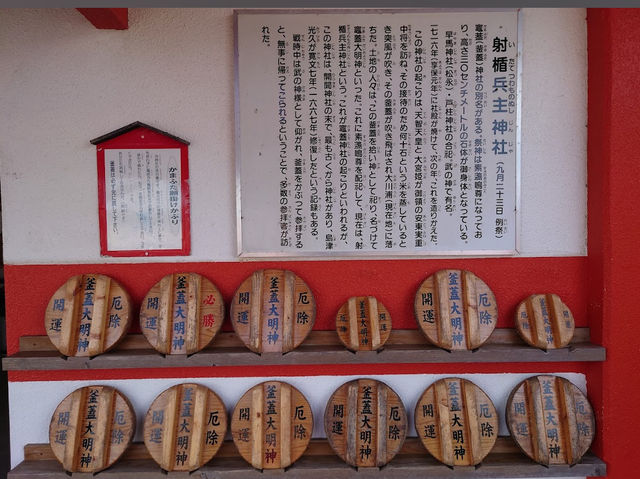 射楯兵主神社（九月二十三日 例祭）
いたてつわものぬしじんじゃ
竈蓋（釜蓋）神社の別名がある。祭神は素盞嗚尊になってお
り、高さ三〇センチメートルの石体が御身体となっている。
早馬神社（松永）・戸柱神社の合祀、武の神で有名。
一七一六年（享保元年）に社殿が焼けて、次の年、これを造りかえた。
この神社の起こりは、天智天皇と大宮姫が御領の安東実重
中将を訪ね、その接待のため何十石という米を蒸していると
き突風が吹き、その釜蓋が吹き飛ばされ大川浦（現在地）に落
ちた。土地の人々は、この釜蓋を拾い神として祀り、名づけて
竈蓋大明神といった。これに素盞嗚尊を配祀して、現在は、射
楯兵主神社という。これが竈蓋神社の起こりといわれるが、
この神社は、開聞神社の末で、最も古くから神社があり、島津
光久が寛文七年（一六六七年）修復したという記録もある。
戦時中は武の神様として仰がれ、釜蓋をかぶって参拝する
と、無事に帰ってこられるということで、多数の参拝客が訪
れた。
かまふた願掛けかぶり
厄除 釜蓋大明神 開運
必勝 釜蓋大明神 開運
厄除 釜蓋大明神 開運
開運 釜蓋大明神 厄除
厄除 釜蓋大明神 開運
開運 釜蓋大明神 厄除
厄除 釜蓋大明神 開運
厄除 釜蓋大明神 開運
厄除 釜蓋大明神 開運
厄除 釜蓋大明神 開運
厄除 釜蓋大明神 開運
厄除 釜蓋大明神 開運